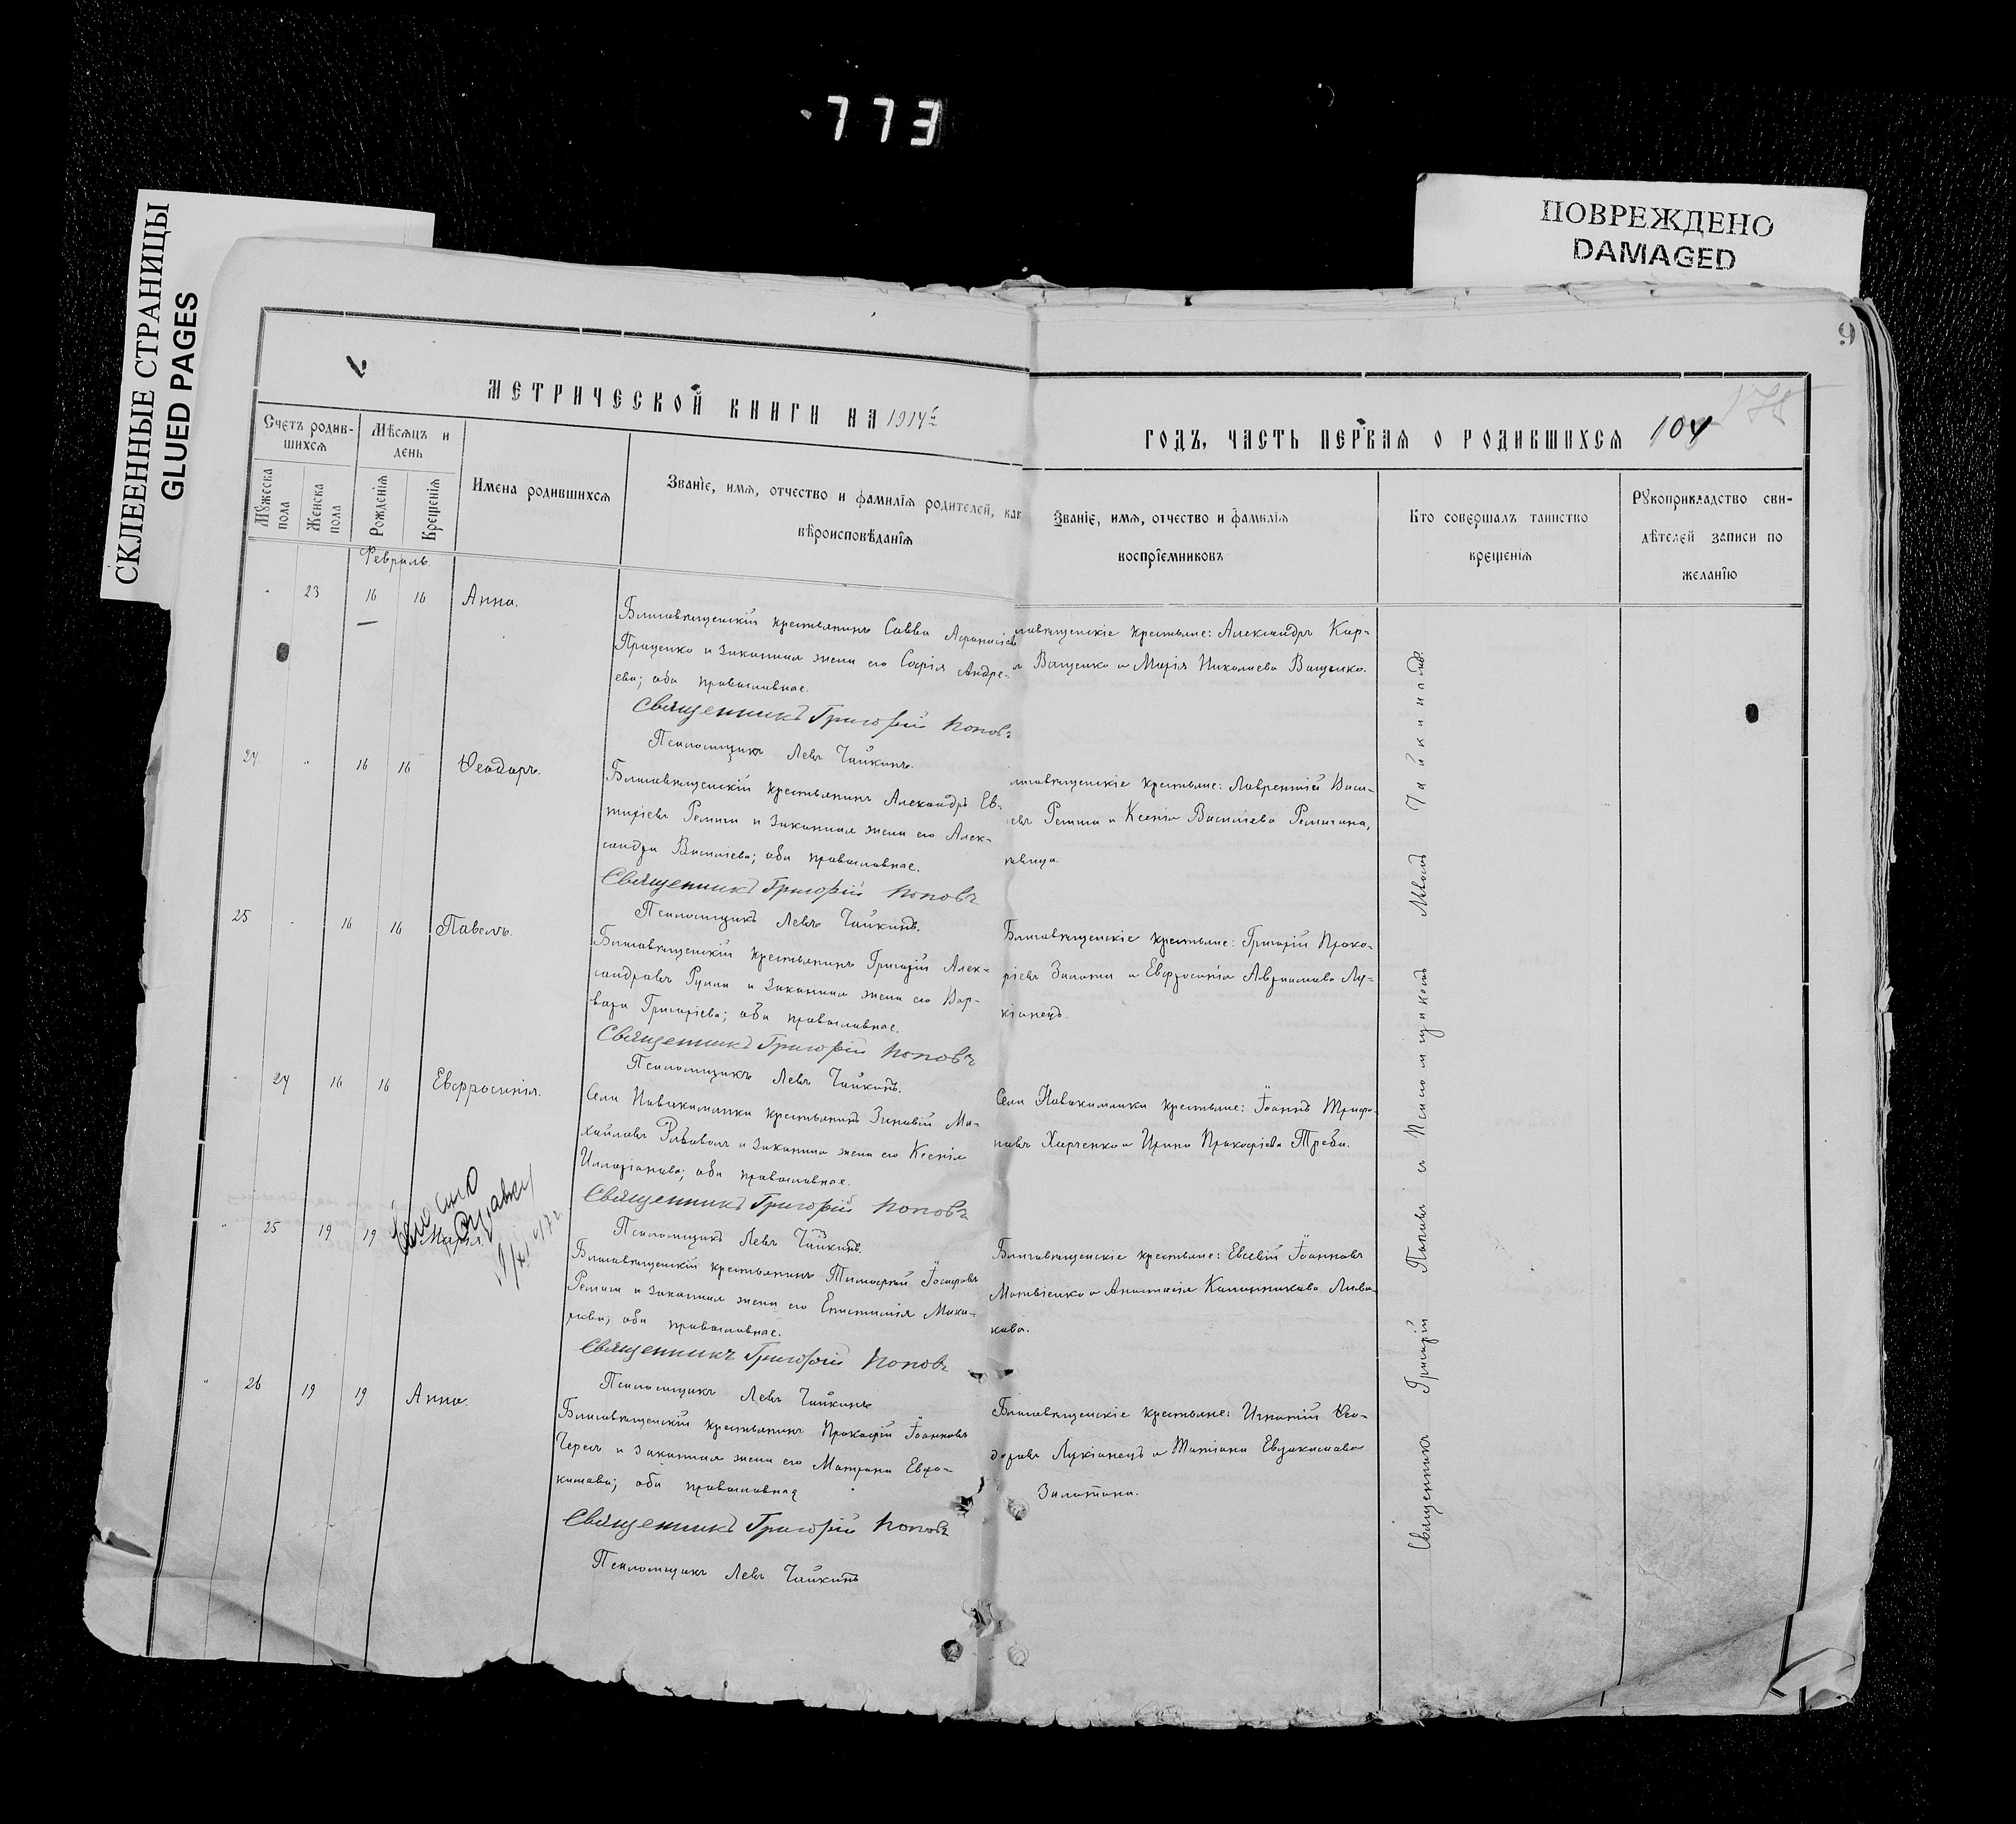 773
СКЛЕЕННЫЕ СТРАНИЦЫ
GLUED PAGES
ПОВРЕЖДЕНО
DAMAGED
9
МЕТРИЧЕСКОЙ КНИГИ НА 1914й
ГОДЪ, ЧАСТЬ ПЕРВАЯ О РОДИВШИХСЯ 104
Счетъ родив-
шихся
Мужеска пола
Женска пола
Мѣсяцъ и
день
Рожденія
Крещенія
Имена родившихся
Званіе, имя, отчество и фамилія родителей, как
вѣроисповѣданія
Званіе, имя, отчество и фамилія
воспріемниковъ
Кто совершалъ таинство
крещенія
Рукоприкладство сви-
дѣтелей записи по
желанію
Февраль.
23 16 16 Анна.
Благовѣщенскій крестьянинъ Савва Аѳанасіев
Праценко и законная жена его Софія Андре-
ева; оба православные.
Священникъ Григорій Поповъ
Псаломщикъ Левъ Чайкинъ.
говѣщенскіе крестьяне: Александръ Кар-
Ващенко и Марія Николаева Ващенко.
24 " 16 16 Ѳеодоръ.
Благовѣщенскій крестьянинъ Александръ Ев-
тихіевъ Ремига и законная жена его Алек-
сандра Василіева; оба православные.
Священникъ Григорій Поповъ
Псаломщикъ Левъ Чайкинъ.
говѣщенскіе крестьяне: Лаврентій Васи-
евъ Ремига и Ксенія Василіева Ремигина,
вица.
25 16 16 Павелъ.
Благовѣщенскій крестьянинъ Григорій Алек-
сандровъ Рула и законная жена его Вар-
вара Григоріева; оба православные.
Священникъ Григорій Поповъ
Псаломщикъ Левъ Чайкинъ.
Благовѣщенскіе крестьяне: Григорій Проко-
ріевъ Золота и Евфросинія Авраамова Лу-
кіанецъ.
24 16 16 Евфросинія.
Села Новакимовки крестьянинъ Зиновій Ми-
хайловъ и законная жена его Ксенія
Илларіонова; оба православные.
Священникъ Григорій Поповъ
Псаломщикъ Левъ Чайкинъ.
Села Новакимовки крестьяне: Іоаннъ Трифо-
новъ Харченко и Ирина Прокофіева Треба.
" 25 19 19 Марія.
справки
Благовѣщенскій крестьянинъ Тимофей Іосифовъ
Ремига и законная жена его Епистимія Мака-
рова; оба православные.
Священникъ Григорій Поповъ
Псаломщикъ Левъ Чайкинъ
Благовѣщенскіе крестьяне: Евсевій Іоанновъ
Матвіенко и Анастасія Каллиникова Лима-
кова.
" 26 19 19 Анна.
Благовѣщенскій крестьянинъ Прокофій Іоанновъ
Чересъ и законная жена его Матрона Евдо-
кимова; оба православные
Священникъ Григорій Поповъ
Псаломщикъ Левъ Чайкинъ
Благовѣщенскіе крестьяне: Игнатій Ѳео-
доровъ Лукіанецъ и Татіана Евдокимова
Золотова.
Священникъ Григорій Поповъ съ Псаломщикомъ Львомъ Чайкинымъ.